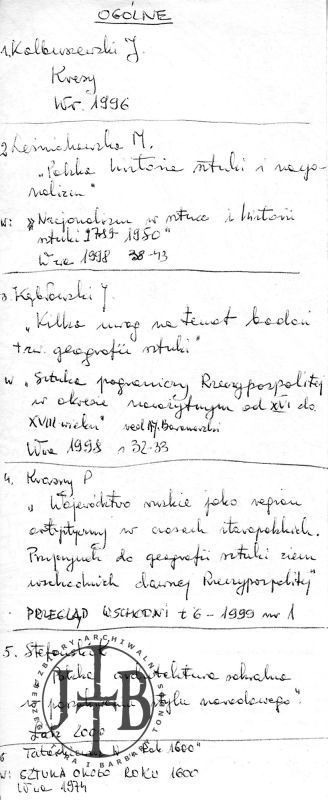 OGÓLNE
1. Kolbuszewski J.
Kresy
Wr. 1996
2 Leśniakowska M.
"Polska historia sztuki i nacjo-
nalizm"
w: "Nacjonalizm w sztuce i historii
sztuki 1789-1950"
W-wa 1998 38-43
3. Kębłowski J.
"Kilka uwag na temat badań
tzw. geografii sztuki"
w "Sztuka pograniczy Rzeczypospolitej
w okresie nowożytnym od XVI do
XVIII wieku" red A.J. Baranowski
W-wa 1998 s 32-33
4. Krasny P
"Województwo ruskie jako region
artystyczny w czasach staropolskich.
Przyczynek do geografii sztuki ziem
wschodnich dawnej Rzeczypospolitej"
PRZEGLĄD WSCHODNI t 6 - 1999 nr 1
5. Stefański K
Polska architektura sakralna
w poszukiwaniu stylu narodowego".
Łódź 2000
6 Tatarkiewicz W "Rok 1600"
w: SZTUKA OKOŁO ROKU 1600
W-wa 1974
JTB